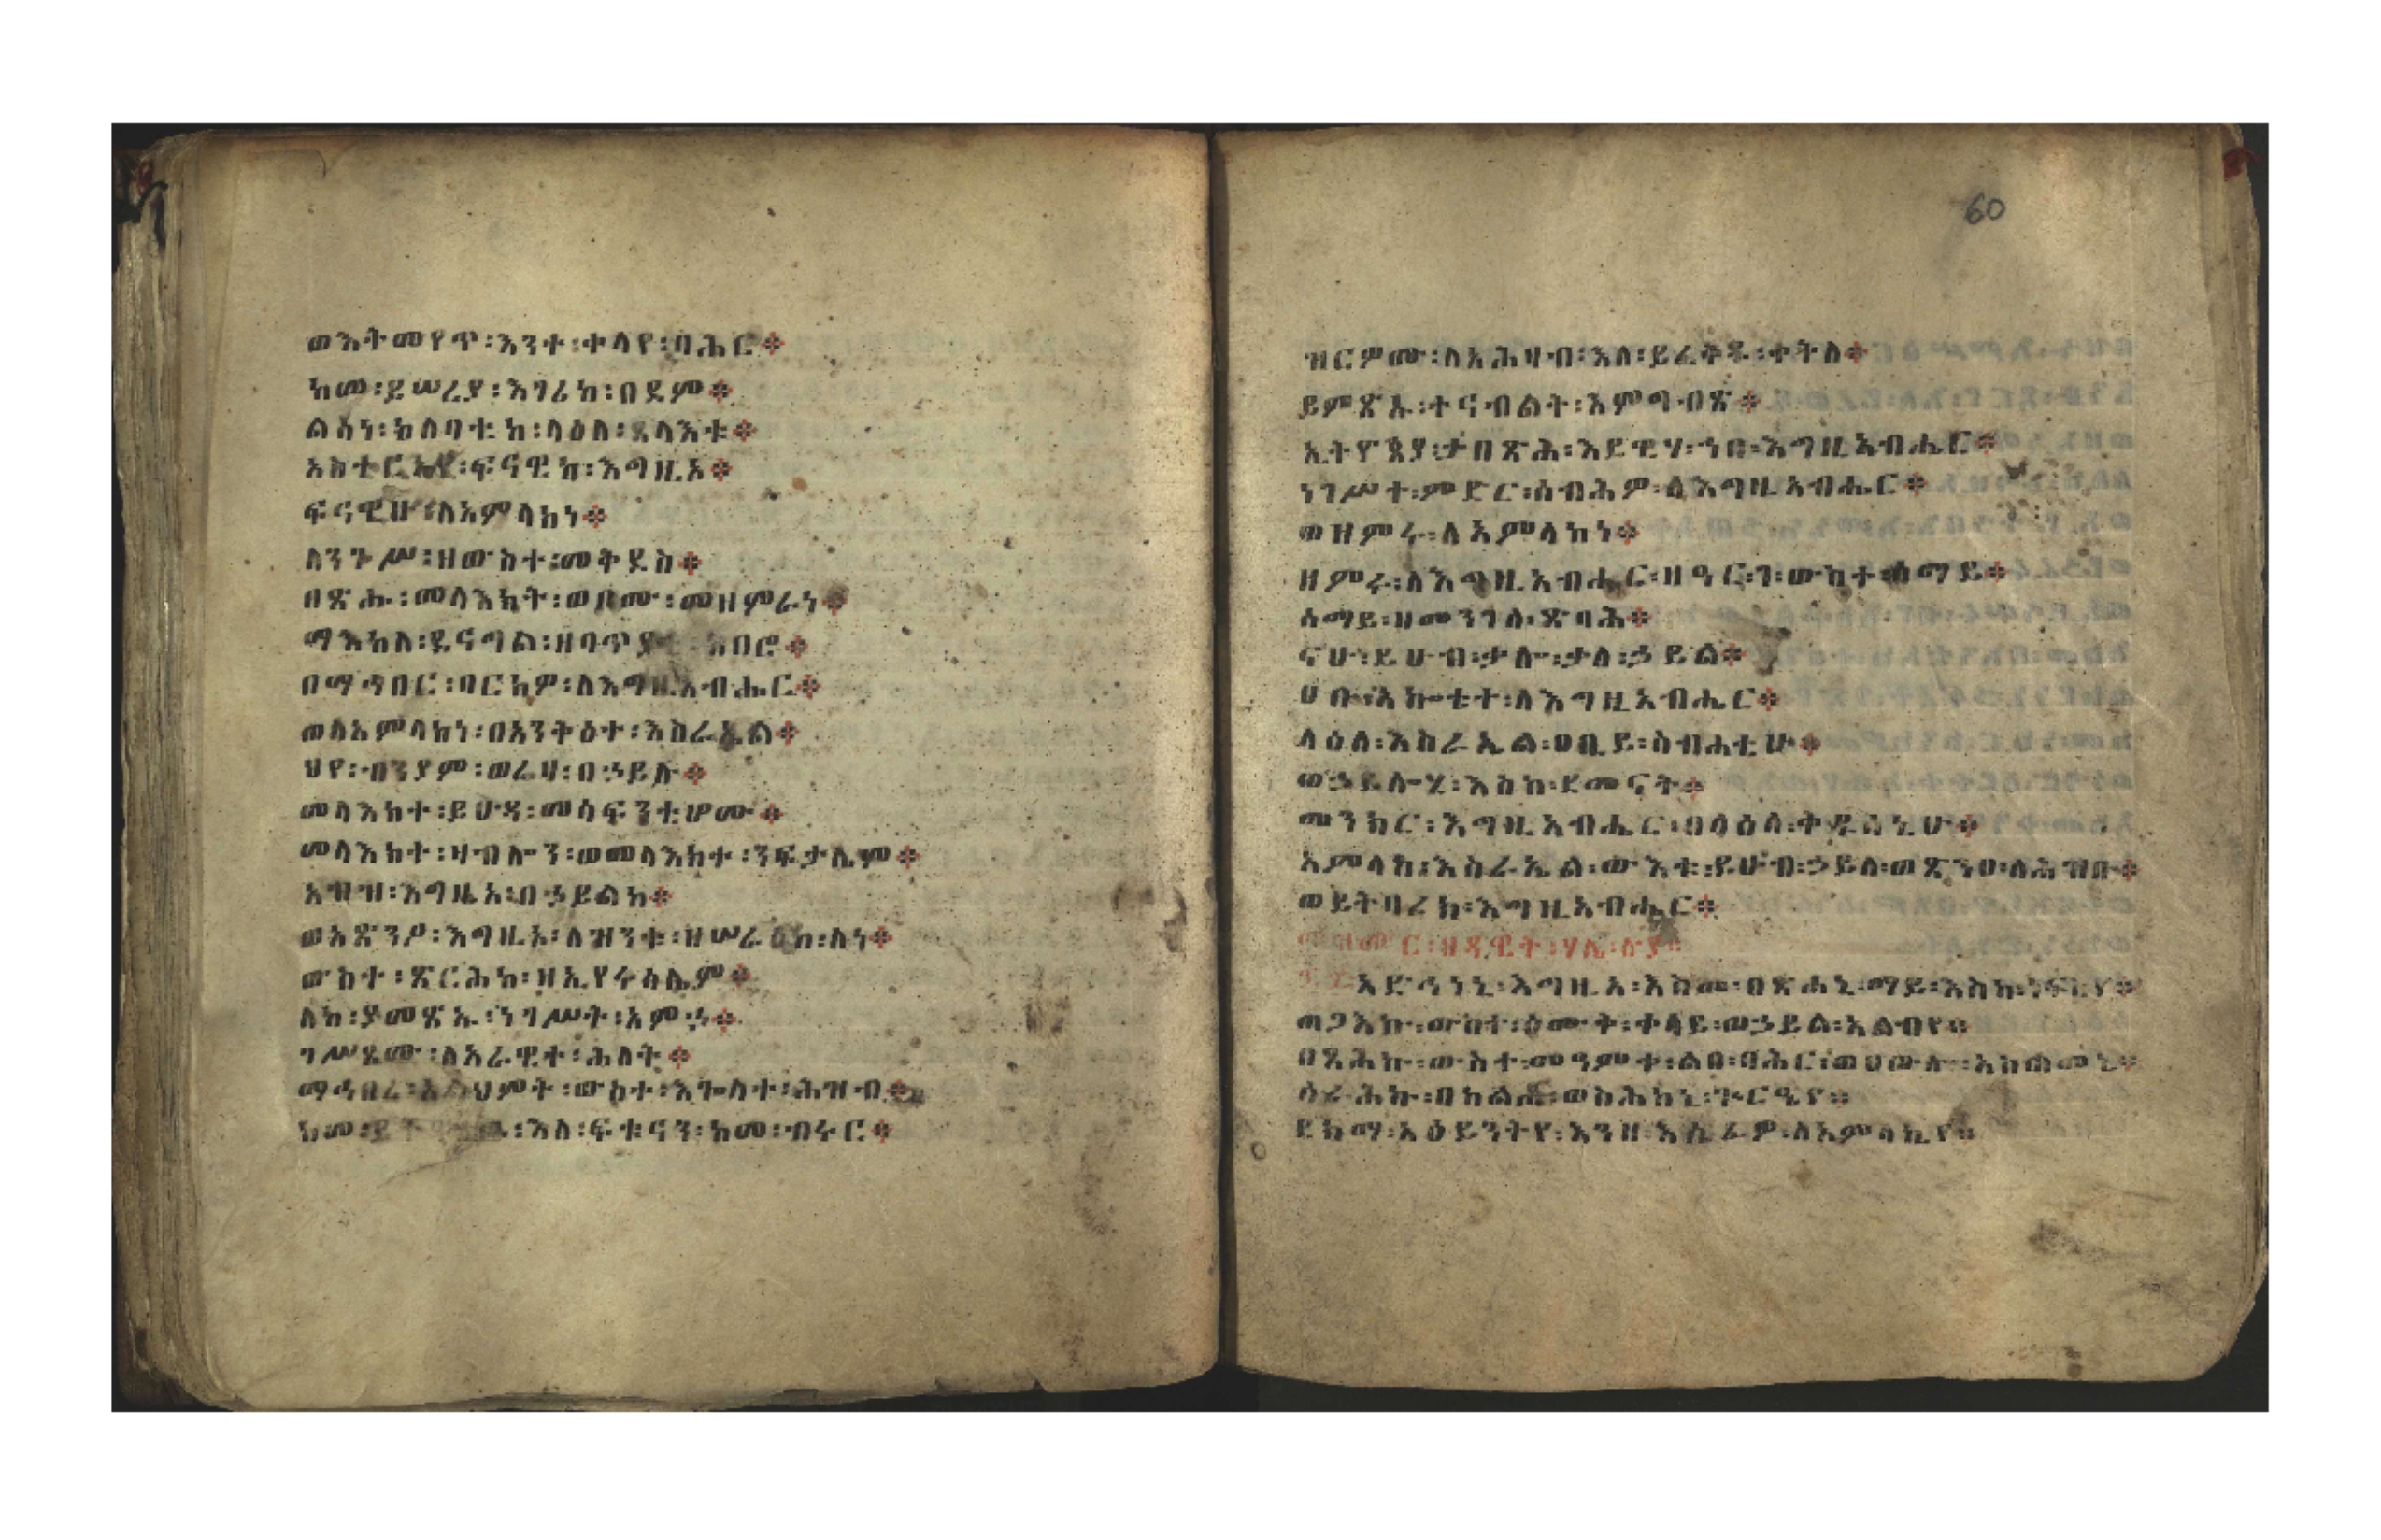 ወእትመየጥ፡እንተ፡ቀላየ፡ባሕር።
ከመ፡ይሠረያ፡እገሪከ፡በደም።
ልሳነ፡ከለባቲከ፡ላዕለ፡ጸላእቱ።
አስተርአየ፡ፍናዊከ፡እግዚአ።
ፍናዊሁ፡ለአምላክነ።
ለንጉሥ፡ዘውስተ፡መቅደስ።
በጽሑ፡መላእክት፡ወቦሙ፡መዘምራነ።
ማእከለ፡ደናግል፡ዘባጥያተ፡ከበሮ።
በማኅበር፡ባርክዎ፡ለእግዚአብሔር።
ወለአምላክነ፡በአንቅዕተ፡እስራኤል።
ህየ፡ብንያም፡ወሬዛ፡በኃይሉ።
መላእክተ፡ይሁዳ፡መሳፍንቲሆሙ።
መላእክተ፡ዛብሎን፡ወመላእክተ፡ንፍታሌም።
አዝዝ፡እግዚኦ፡በኃይልከ።
ወአጽንዖ፡እግዚኦ፡ለዝንቱ፡ዘሠራዕከ፡ለነ።
ውስተ፡ጽርሕከ፡ዘኢየሩሳሌም።
ለከ፡ያመጽኡ፡ነገሥት፡አምኃ።
ገሥጾሙ፡ለአራዊተ፡ሕለት።
ማኅበረ፡አልህምት፡ውስተ፡እጐላተ፡ሕዝብ።
ከመ፡እለ፡ፍቱናን፡ከመ፡ብሩር።
60
ዝርዎሙ፡ለአሕዛብ፡እለ፡ይፈቅዱ፡ቀትለ።
ይምጽኡ፡ተናብልት፡እምግብጽ።
ኢትዮጵያ፡ታበጽሕ፡እደዊሃ፡ኀበ፡እግዚአብሔር።
ነገሥተ፡ምድር፡ሰብሕዎ፡ለእግዚአብሔር።
ወዘምሩ፡ለአምላክነ።
ዘምሩ፡ለእግዚአብሔር፡ዘዓርገ፡ውስተ፡ሰማይ።
ሰማይ፡ዘመንገለ፡ጽባሕ።
ናሁ፡ይሁብ፡ቃሎ፡ቃለ፡ኃይል።
ሀቡ፡አኰቴተ፡ለእግዚአብሔር።
ላዕለ፡እስራኤል፡ዐቢይ፡ስብሐቲሁ።
ወኃይሎሂ፡እስከ፡ደመናት።
መንክር፡እግዚአብሔር፡በላዕለ፡ቅዱሳኒሁ።
አምላከ፡እስራኤል፡ውእቱ፡ይሁብ፡ኃይለ፡ወጽንዐ፡ለሕዝቡ።
ወይትባረክ፡እግዚአብሔር።
መዝሙር፡ዘዳዊት፡ሃሌ፡ሉያ።
አድኅነኒ፡እግዚኦ፡እስመ፡በጽሐኒ፡ማይ፡እስከ፡ነፍስየ።
ጠጋእኩ፡ውስተ፡ዕሙቅ፡ቀላይ፡ወኃይል፡አልብየ።
በጻሕኩ፡ውስተ፡መዓምቀ፡ልበ፡ባሕር፡ወዐውሎ፡አስጠመኒ።
ሰራሕኩ፡በከልሖ፡ወስሕከኒ፡ጕርዔየ።
ደክማ፡አዕይንትየ፡እንዘ፡እሴፈዎ፡ለአምላኪየ።